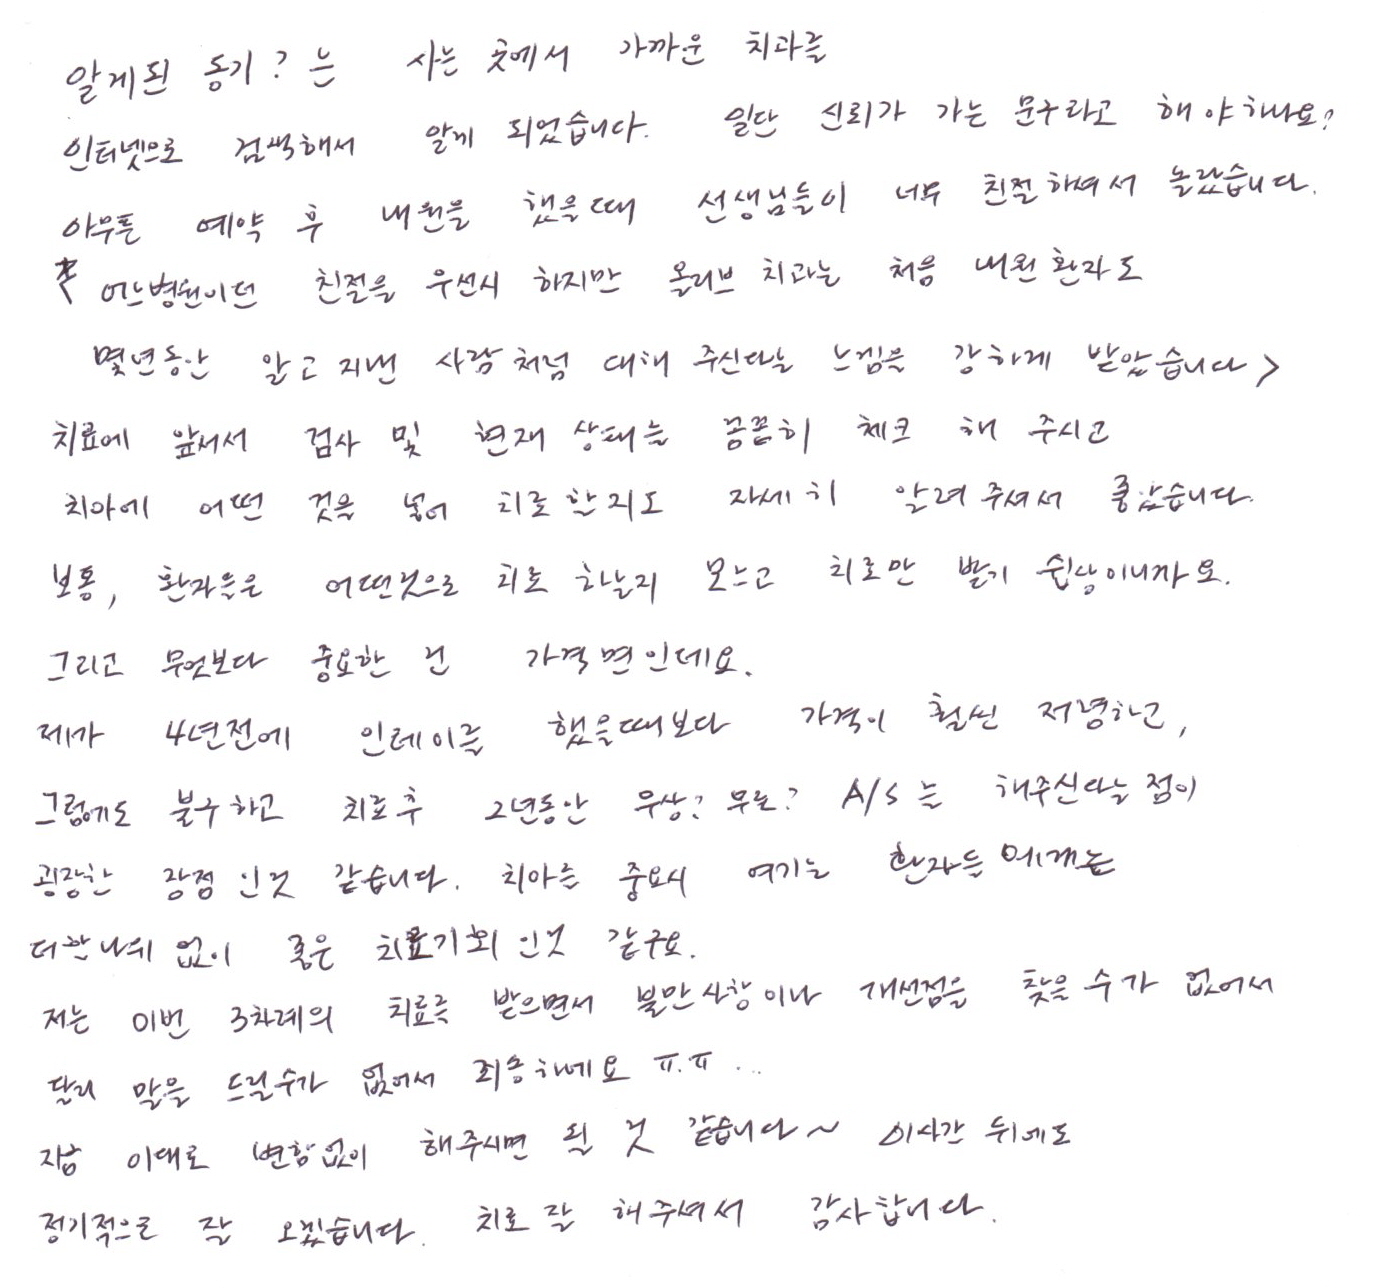 알게된 동기? 는 사는 곳에서 가까운 치과를
인터넷으로 검색해서 알게 되었습니다. 일단 신뢰가 가는 문구라고 해야하나요?
아무튼 예약 후 내원을 했을때 선생님들이 너무 친절하셔서 놀랐습니다.
어느병원이던 친절을 우선시 하지만 올리브 치과는 처음 내원환자도
몇년동안 알고지낸 사람처럼 대해 주신다는 느낌을 강하게 받았습니다>
치료에 앞서서 검사 및 현재 상태를 꼼꼼히 체크 해 주시고
치아에 어떤 것을 넣어 치료한지도 자세히 알려주셔서 좋았습니다.
보통, 환자들은 어떤것으로 치료 하는지 모르고 치료만 받기 쉽상이니까요.
그리고 무엇보다 중요한 건 가격면인데요.
제가 4년전에 인레이를 했을때보다 가격이 훨씬 저렴하고,
그럼에도 불구하고 치료후 2년동안 무상? 무료? A/S를 해주신다는점이
굉장한 장점인것 같습니다. 치아를 중요시 여기는 환자들에게는
더할나위 없이 좋은 치료기회인것 같구요.
저는 이번 3차례의 치료를 받으면서 불만사항이나 개선점을 찾을수가 없어서
달리 말을 드릴수가 없어서 죄송하네요 ㅠ.ㅠ ...
지금 이대로 변함없이 해주시면 될 것 같습니다~ 이사간 뒤에도
정기적으로 잘 오겠습니다. 치료 잘 해주셔서 감사합니다.